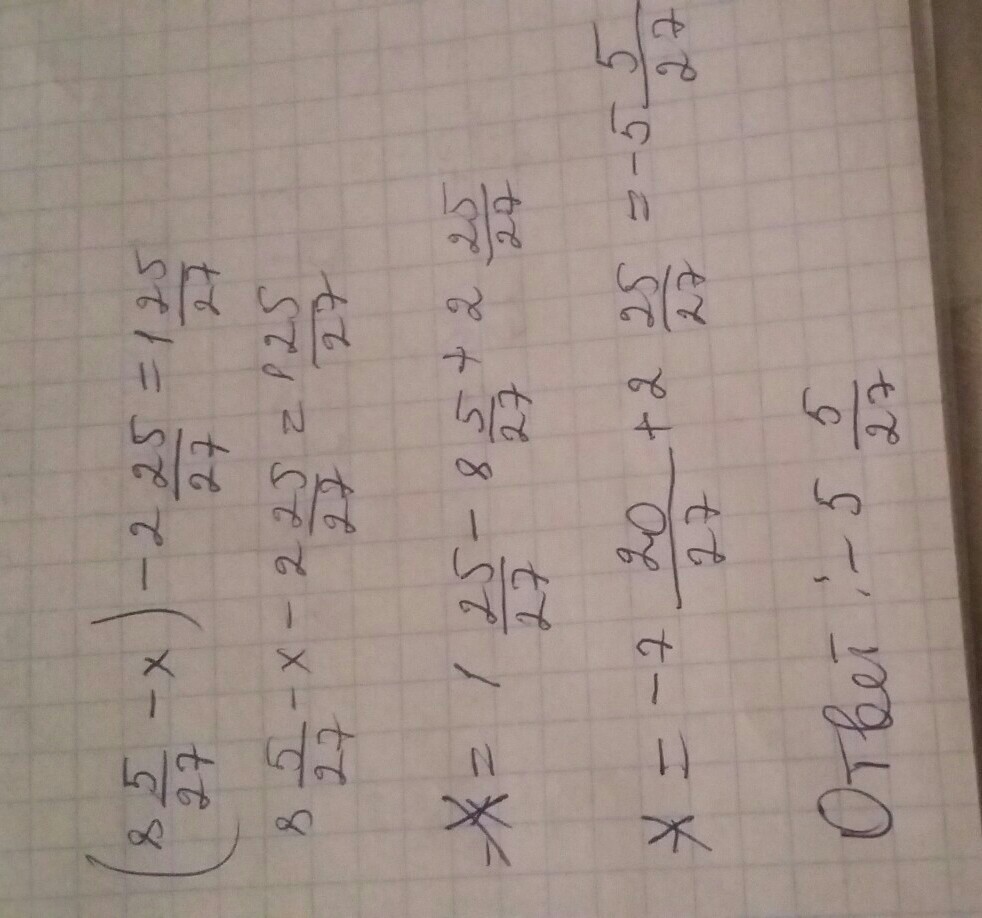 (8 5/27 - x) - 2 25/27 = 1 25/27
8 5/27 - x - 2 25/27 = 1 25/27
-x = 1 25/27 - 8 5/27 + 2 25/27
x = -7 20/27 + 2 25/27 = -5 5/27
Ответ: -5 5/27